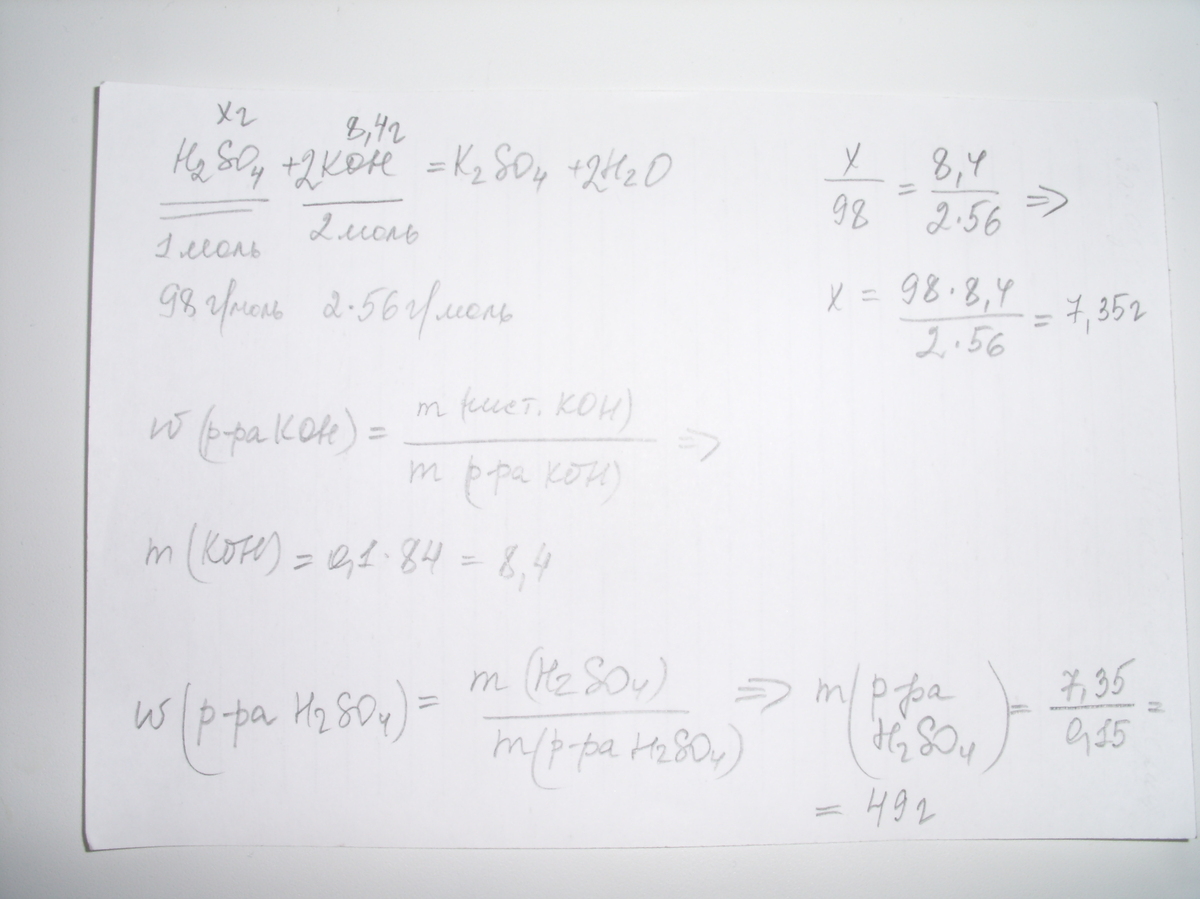 xг 8,4г
H₂SO₄ + 2KOH = K₂SO₄ + 2H₂O
1 моль 2 моль
98 г/моль 2·56 г/моль
x/98 = 8,4/2·56 =>
x = 98·8,4/2·56 = 7,35г
w (р-ра KOH) = m (чист. KOH)/m (р-ра KOH) =>
m (KOH) = 0,1·84 = 8,4
w (р-ра H₂SO₄) = m (H₂SO₄)/m (р-ра H₂SO₄) => m (р-ра H₂SO₄) = 7,35/0,15 =
= 49г